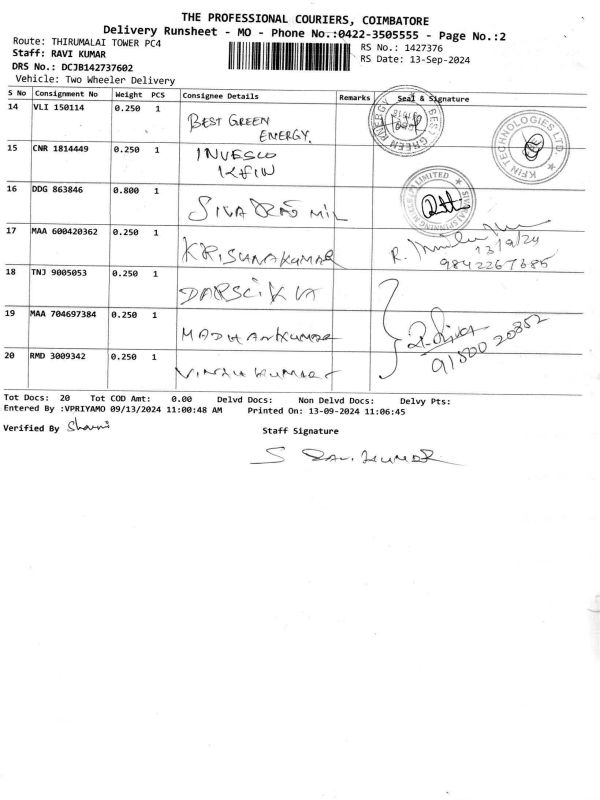 THE PROFESSIONAL COURIERS, COIMBATORE
Delivery Runsheet - MO - Phone No.:0422-3505555 - Page No.:2
Route: THIRUMALAI TOWER PC4
RS No.: 1427376
Staff: RAVI KUMAR
RS Date: 13-Sep-2024
DRS No.: DCJB142737602
Vehicle: Two Wheeler Delivery
S No Consignment No Weight PCS Consignee Details Remarks Seal & Signature
14 VLI 150114 0.250 1 BEST GREEN ENERGY.
BEST GREEN ENERGY
15 CNR 1814449 0.250 1 INVESCO KFIN
KFIN TECHNOLOGIES LTD
16 DDG 863846 0.800 1 SIVARAJ MIL
17 MAA 600420362 0.250 1 KRISUNAKUMAR
R.
13/9/24
9842267685
18 TNJ 9005053 0.250 1 DARSCIKVA
19 MAA 704697384 0.250 1 MADHANKUMAR
91500 20852
20 RMD 3009342 0.250 1
Tot Docs: 20 Tot COD Amt: 0.00 Delvd Docs: Non Delvd Docs: Delvy Pts:
Entered By :VPRIYAMO 09/13/2024 11:00:48 AM Printed On: 13-09-2024 11:06:45
Verified By
Staff Signature
S RAVIKUMAR